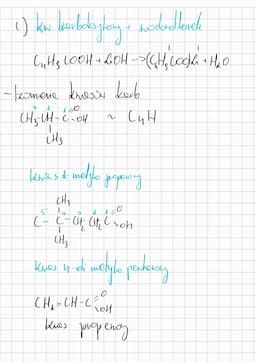 1) kw karboksylowy + wodorotlenek
C₄H₅COOH + LiOH → (C₄H₅COO)Li + H₂O
- izomeria kwasów karb
CH₃-CH-C=O-OH ~ C₄H
CH₃
kwas 2-metylo propanowy
CH₃
C-C-CH₂CH₂C=O OH
CH₃
kwas 4-di metylo pentanowy
CH₂=CH-C=O OH
kwas propenowy